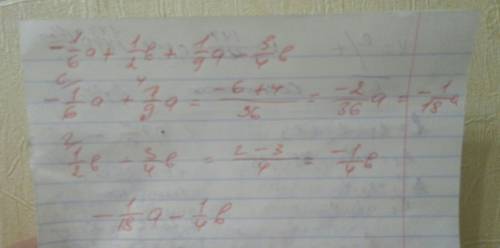 -1/6a + 1/2b + 1/9a - 3/4b
-1/6a + 1/9a = (-6+4)/36 = -2/36a = -1/18a
1/2b - 3/4b = (2-3)/4 = -1/4b
-1/18a - 1/4b